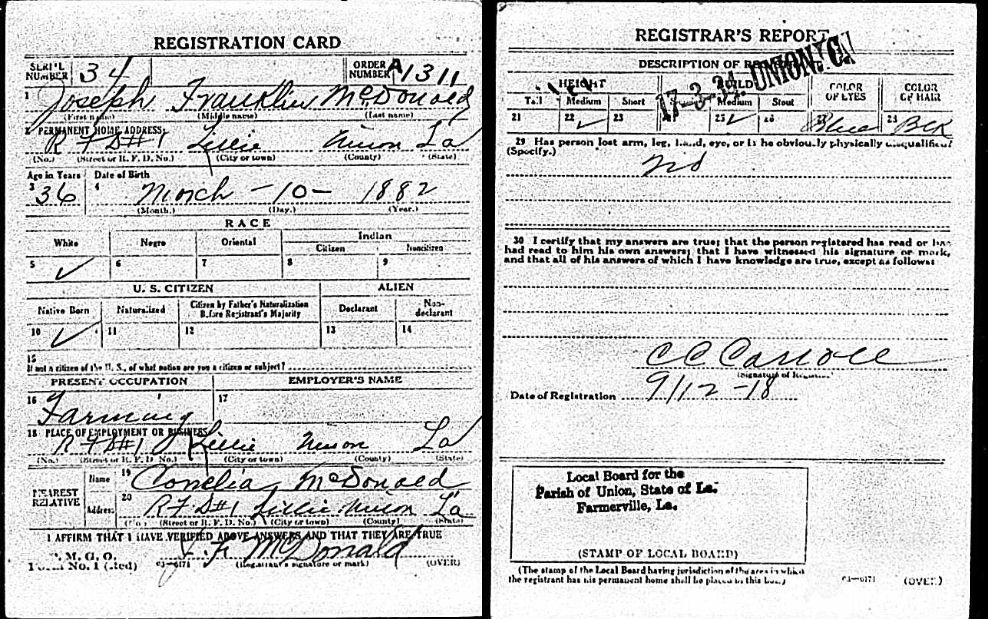 REGISTRATION CARD
SERIAL NUMBER 34 ORDER NUMBER A1311
1 Joseph Franklin McDonald
(First name) (Middle name) (Last name)
2 PERMANENT HOME ADDRESS:
R F D #1 Lillie Union La
(No.) (Street or R. F. D. No.) (City or town) (County) (State)
Age in Years Date of Birth
3 36 4 March - 10 - 1882
(Month.) (Day.) (Year.)
RACE
White Negro Oriental Indian
Citizen Noncitizen
5 ✓ 6 7 8 9
U. S. CITIZEN ALIEN
Native Born Naturalized Citizen by Father's Naturalization Before Registrant's Majority Declarant Non-declarant
10 ✓ 11 12 13 14
15
If not a citizen of the U. S., of what nation are you a citizen or subject?
PRESENT OCCUPATION EMPLOYER'S NAME
16 Farming 17
18 PLACE OF EMPLOYMENT OR BUSINESS:
R F D #1 Lillie Union La
(No.) (Street or R. F. D. No.) (City or town) (County) (State)
NEAREST RELATIVE Name 19 Conelia McDonald
Address 20 R F D #1 Lillie Union La
(No.) (Street or R. F. D. No.) (City or town) (County) (State)
I AFFIRM THAT I HAVE VERIFIED ABOVE ANSWERS AND THAT THEY ARE TRUE
P. M. G. O.
Form No. 1 (Red) 03—6171 J. F. McDonald
(Registrant's signature or mark) (OVER)
REGISTRAR'S REPORT
17-3-34. UNION, CA
DESCRIPTION OF REGISTRANT
HEIGHT BUILD COLOR OF EYES COLOR OF HAIR
Tall Medium Short Medium Stout
21 22 ✓ 23 25 ✓ 26 27 Blue 28 BLK
29 Has person lost arm, leg, hand, eye, or is he obviously physically disqualified?
(Specify.) No
30 I certify that my answers are true; that the person registered has read or has
had read to him his own answers; that I have witnessed his signature or mark,
and that all of his answers of which I have knowledge are true, except as follows:
C C Carroll
(Signature of Registrar)
Date of Registration 9/12-18
Local Board for the
Parish of Union, State of La.
Farmerville, La.
(STAMP OF LOCAL BOARD)
(The stamp of the Local Board having jurisdiction of the area in which
the registrant has his permanent home shall be placed in this box.)
03—6171 (OVER)